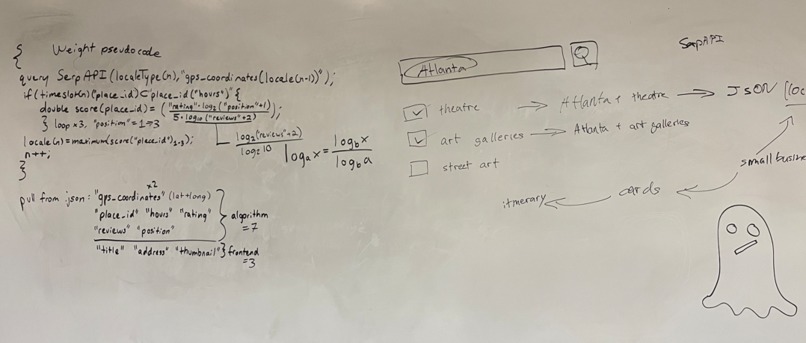 { Weight pseudocode
{
query SerpAPI(localeType(n), "gps_coordinates(locale(n-1))");
if(timeslot(n)("place_id) ⊂ "place_id("hours")" {
double score(place_id) = ("rating"·log₂("position"+1) / 5·log₁₀("reviews"+2));
} loop ×3, "position"=1→3
log₂("reviews"+2) / log₂10
logₐx = log_b x / log_b a
locale(n)=maximum(score("place_id")₁₋₃);
n++;
}
}
pull from .json: "gps_coordinates" (lat+long)
x2
"place_id" "hours" "rating"
"reviews" "position"
} algorithm = 7
"title" "address" "thumbnail" } frontend = 3
SerpAPI
Atlanta
Q
theatre → Atlanta + theatre → JSON [loc
art galleries → Atlanta + art galleries
street art
small busine
cards
itinerary